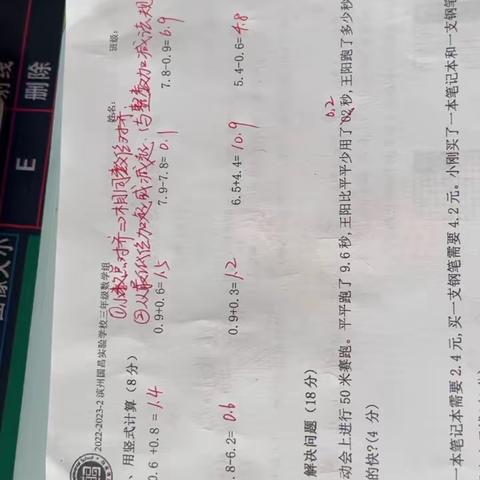 删除
E
2022-2023-2 滨州国昌实验学校三年级数学组 姓名: 班级:
①小数点对齐⇒相同数位对齐
②从最低位加起或减起,与整数加减法规
、用竖式计算(8分)
0.6+0.8=1.4 0.9+0.6=1.5 7.9-7.8=0.1 7.8-0.9=6.9
.8-6.2=0.6 0.9+0.3=1.2 6.5+4.4=10.9 5.4-0.6=4.8
解决问题(18分)
动会上进行50米赛跑。平平跑了9.6秒,王阳比平平少用了0.2秒,王阳跑了多少秒
的快?(4分)
一本笔记本需要2.4元,买一支钢笔需要4.2元。小刚买了一本笔记本和一支钢笔